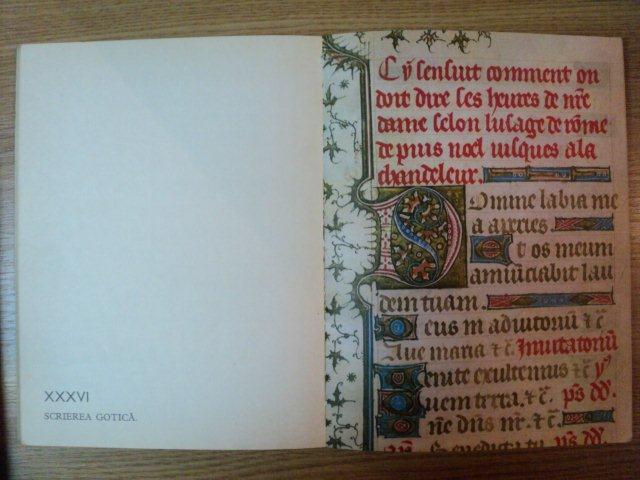 XXXVI
SCRIEREA GOTICĂ.
Cy sensuit comment on
doit dire les heures de nr̃e
dame selon lusage de rõme
de puis noel iusques a la
chandeleur.
Domine labia me
a aperies.
Et os meum
annũciabit lau
dem tuam.
Deus in adiutoriũ ⁊ c̃
Aue maria ⁊ c̃. Inuitatoriũ
Uenite exultemus ⁊ c̃ ps̃ dd̃.
Quem terra. ⁊ c̃. ps̃ dd̃.
ñe dñs nr̃. ⁊ c̃.
Benedicta tu ps̃ dd̃.